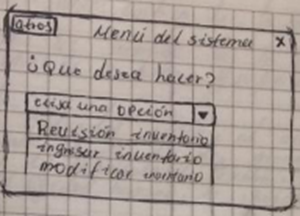 Menú del sistema X
¿Que desea hacer?
elija una opción
Revisión inventario
ingresar inventario
modificar inventario